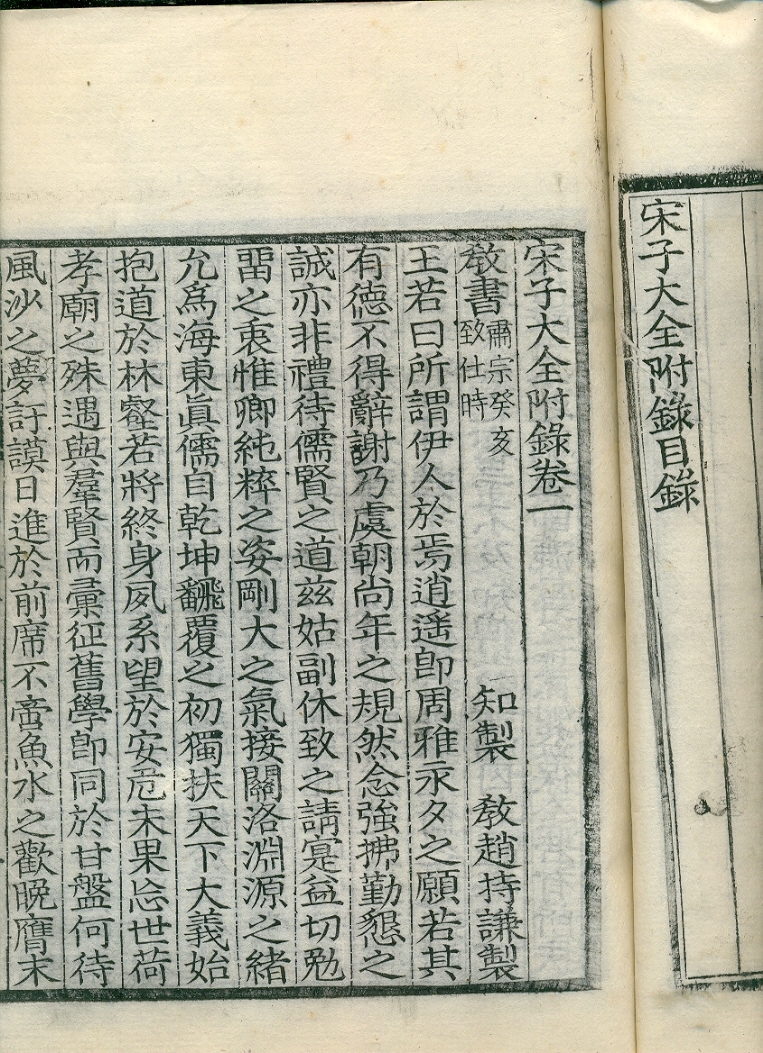 宋子大全附錄目錄
宋子大全附錄卷一
敎書 肅宗癸亥致仕時 知製 敎趙持謙製
王若曰所謂伊人於焉逍遥卽周雅永夕之願若其
有德不得辭謝乃虞朝尚年之規然念強拂勤懇之
誠亦非禮待儒賢之道玆姑副休致之請寔益切勉
畱之衷惟卿純粹之姿剛大之氣接關洛淵源之緖
允爲海東眞儒自乾坤飜覆之初獨扶天下大義始
抱道於林壑若將終身夙系望於安危未果忘世荷
孝廟之殊遇與羣賢而彙征舊學卽同於甘盤何待
風沙之夢訏謨日進於前席不啻魚水之歡晩膺末